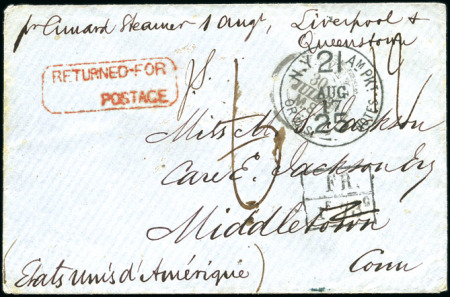 pr Cunard Steamer 1 Augt, Liverpool &
Queenstown
RETURNED-FOR
POSTAGE
N.Y. AM PKT
21
AUG
17
25
NOTES
Miss M. Jackson
Care E. Jackson Esq
FR.
Middletown
(Etats Unis d'Amérique)
Conn